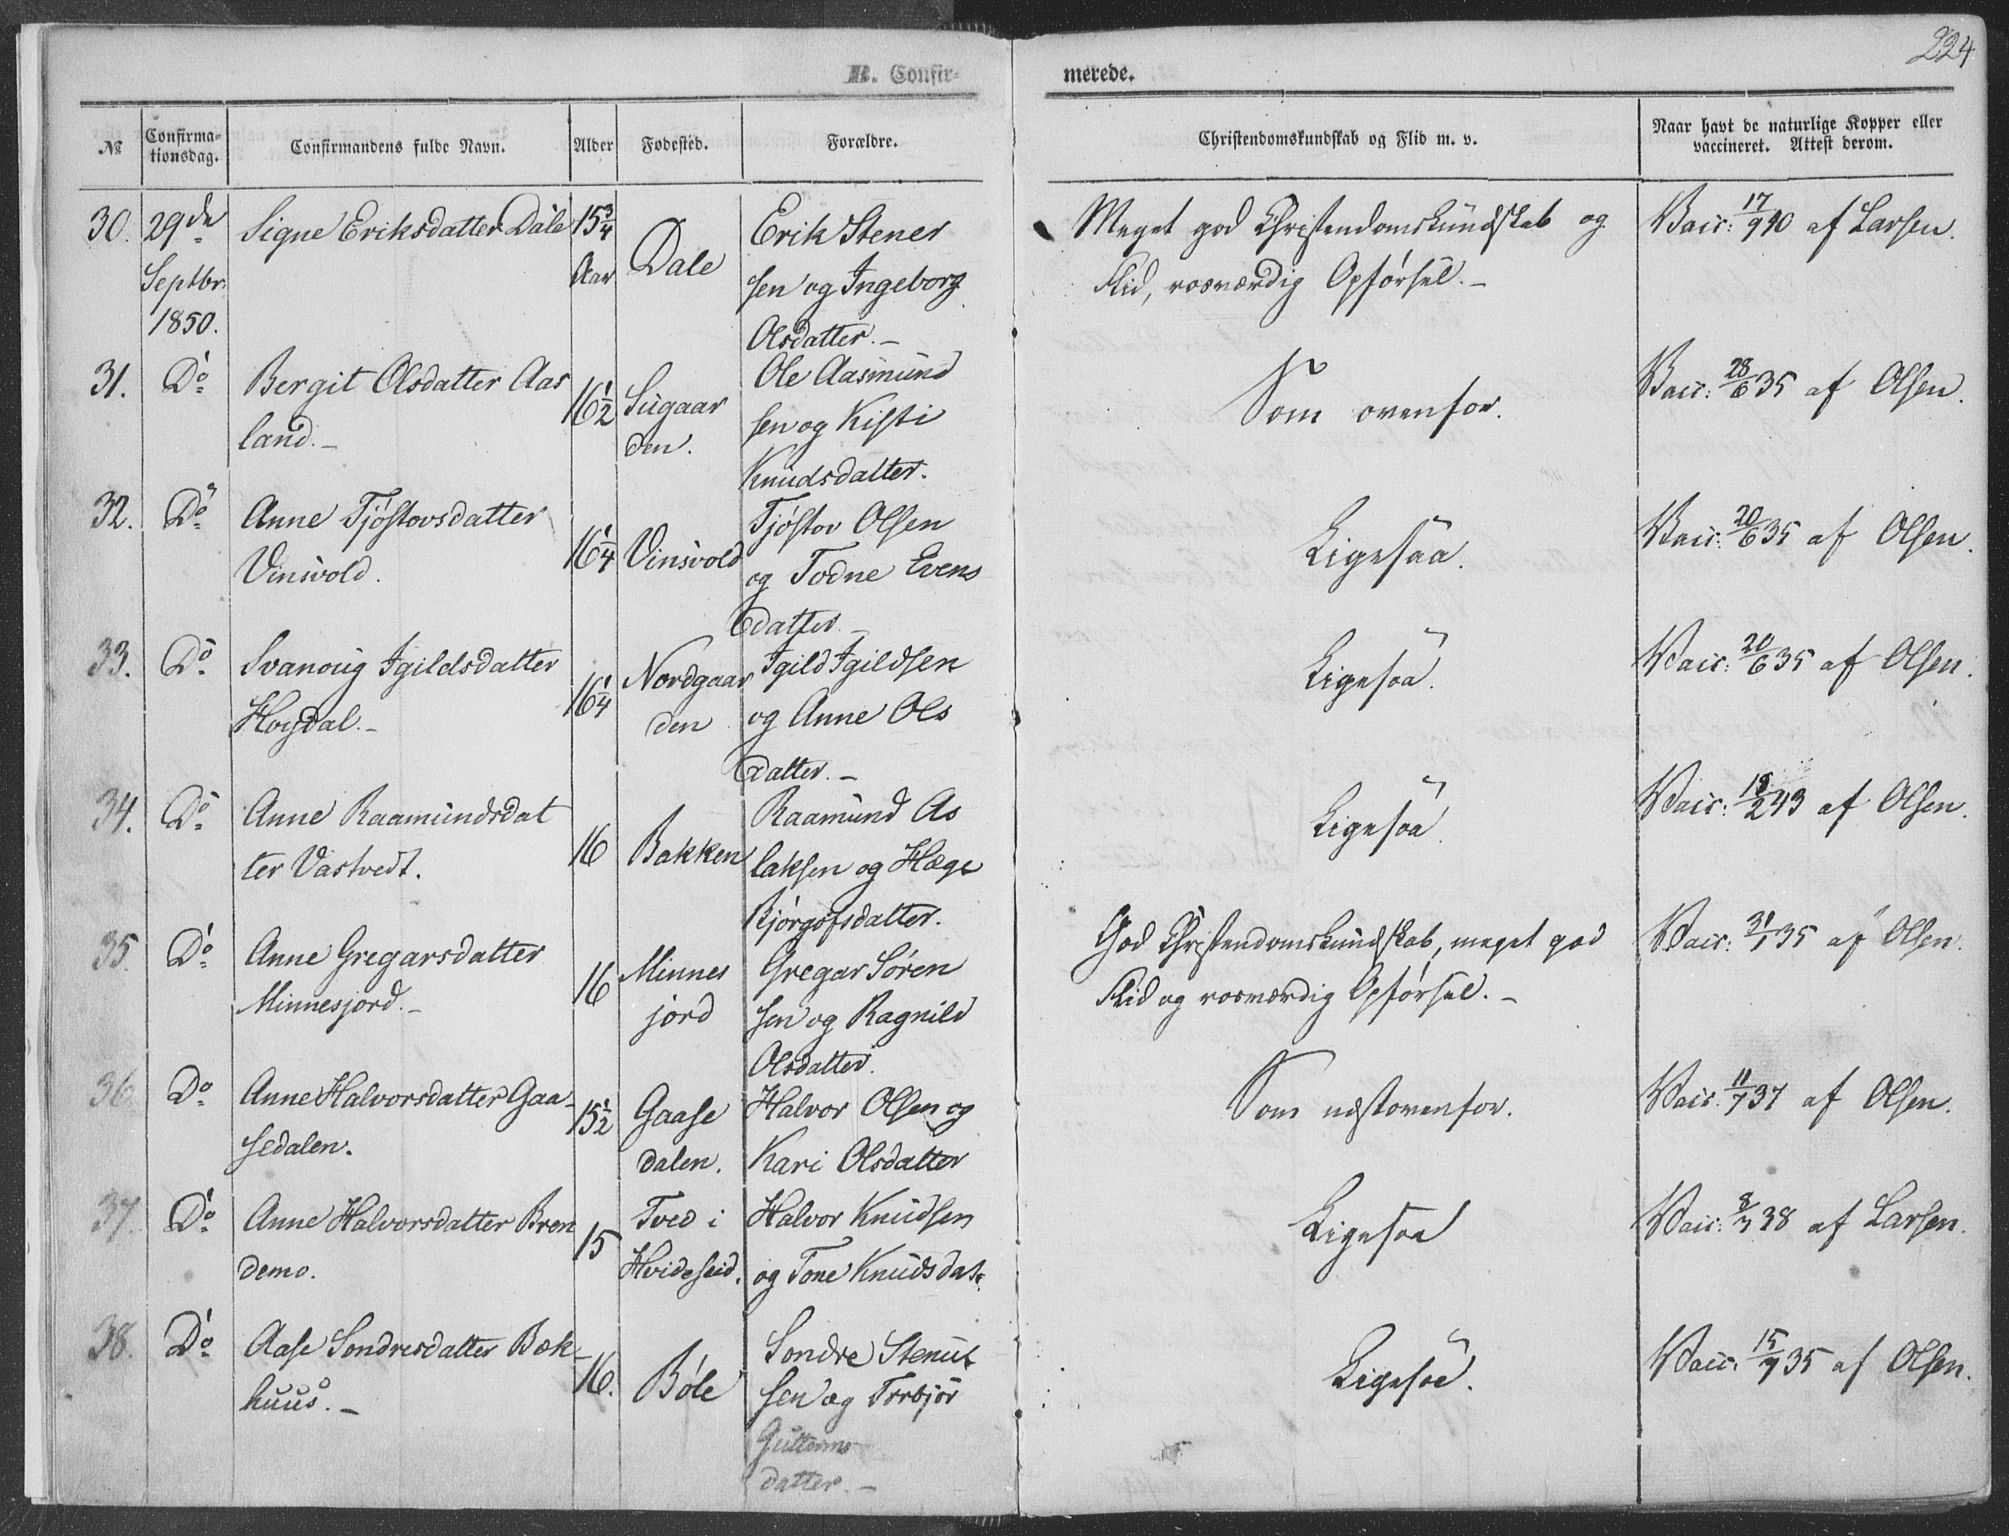 224
B. Confir-
merede.
№
Confirma-
tionsdag.
Confirmandens fulde Navn.
Alder
Fødested.
Forældre.
Christendomskundskab og Flid m. v.
Naar havt de naturlige Kopper eller
vaccineret. Attest derom.
30.
29de
Septbr.
1850.
Signe Eriksdatter Dale
15 3/4
Aar
Dale
Erik Stener
sen og Ingeborg
Olsdatter. –
Meget god Christendomskundskab og
Flid, rosværdig Opførsel. –
Vacc: 17/9 40 af Larsen.
31.
Do
Bergit Olsdatter Aas
land. –
16 1/2
Sugaar
den.
Ole Aasmund
sen og Kisti
Knudsdatter.
Som ovenfor.
Vacc: 28/6 35 af Olsen.
32.
Do
Anne Tjøstovsdatter
Vinsvold.
16 1/4
Vinsvold
Tjøstov Olsen
og Todne Evens
datter. –
Ligesaa.
Vacc: 20/6 35 af Olsen.
33.
Do
Svanoug Igildsdatter
Hogdal. –
16 1/4
Nordgaar
den
Igild Igildsen
og Anne Ols
datter. –
Ligesaa.
Vacc: 20/6 35 af Olsen.
34.
Do
Anne Raamundsdat
ter Vastvedt.
16
Bakken
Raamund As
laksen og Hæge
Bjørgofsdatter.
Ligesaa.
Vacc: 19/2 43 af Olsen.
35.
Do
Anne Gregarsdatter
Minnesjord. –
16
Minnes
jord
Gregar Søren
sen og Ragnild
Olsdatter.
God Christendomskundskab, meget god
Flid og rosværdig Opførsel. –
Vacc: 31/1 35 af Olsen.
36
Do
Anne Halvorsdatter Gaa-
sedalen.
15 1/2
Gaase
dalen.
Halvor Olsen og
Kari Olsdatter
Som næstovenfor.
Vacc: 11/7 37 af Olsen.
37.
Do
Anne Halvorsdatter Bren
demo.
15
Tved i
Hvideseid.
Halvor Knudsen
og Tone Knudsdat.
Ligesaa
Vacc: 8/7 38 af Larsen.
38.
Do
Aase Sondresdatter Bæk-
huus. –
16.
Bøle
Sondre Stenut
sen og Torbjør
Guttorms
datter. –
Ligesaa.
Vacc: 15/7 35 af Olsen.